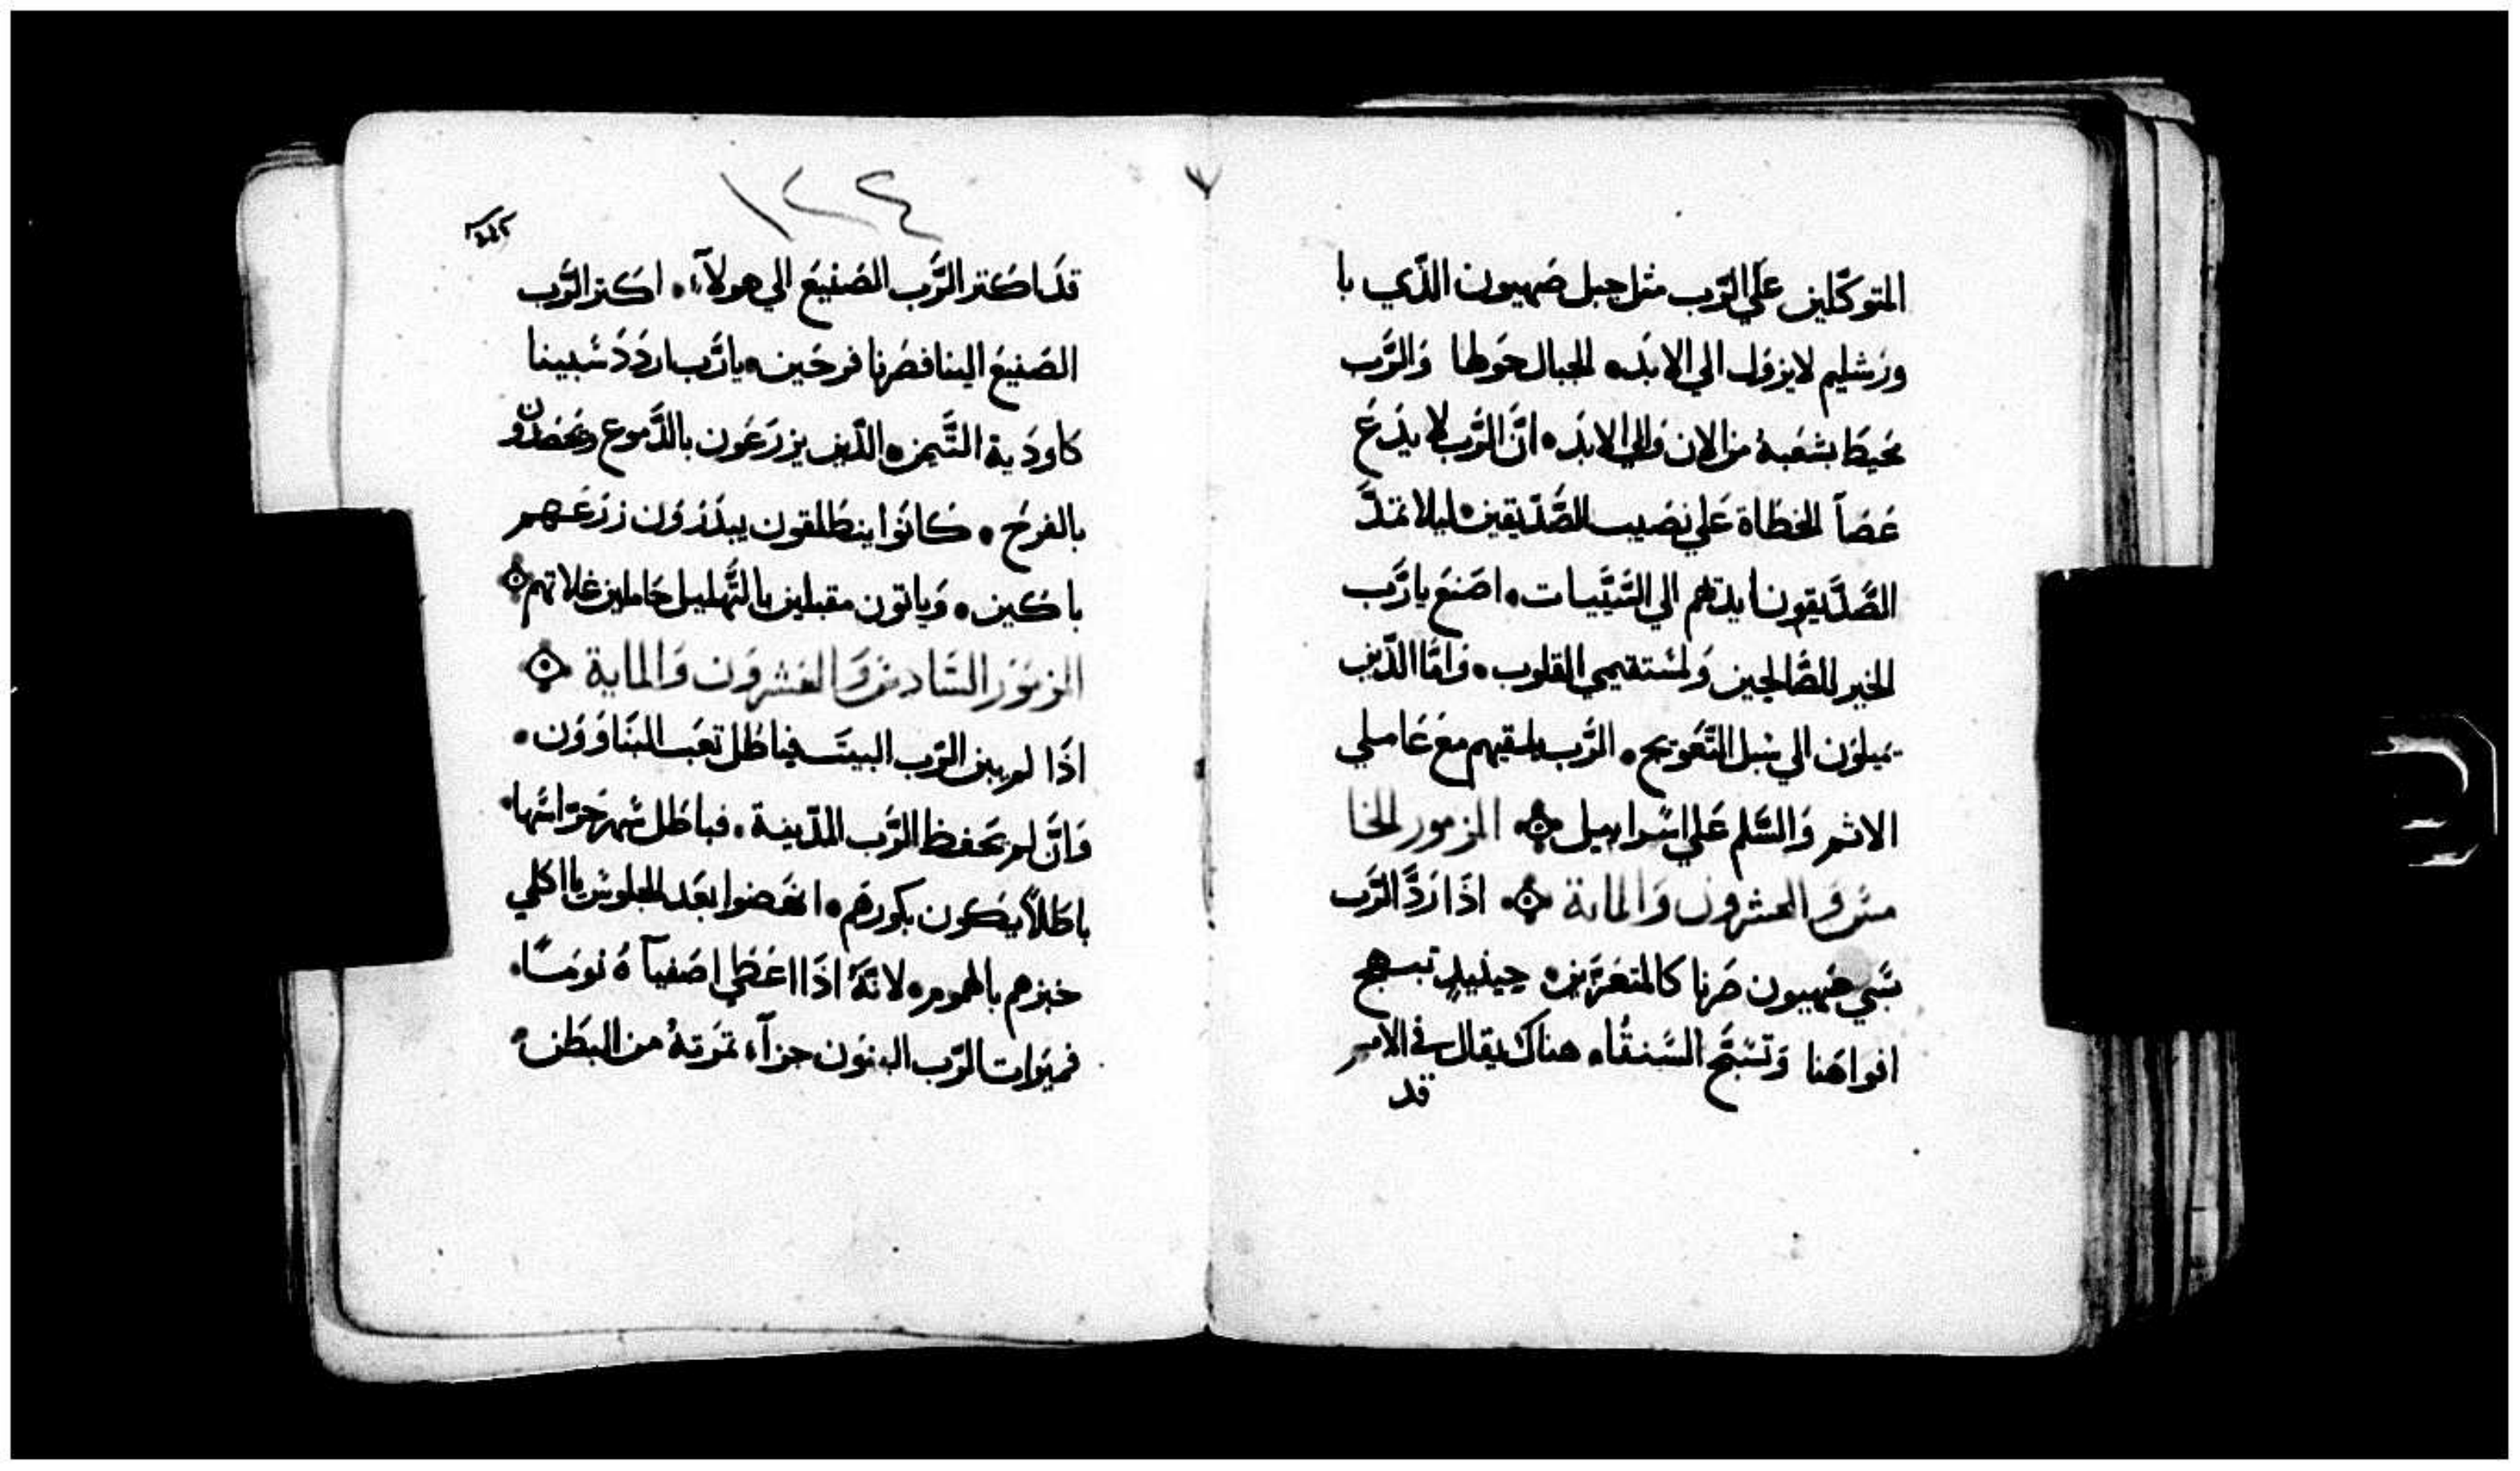 المتوكّلين علي الرّب مثل جبل صهيون الذّي با
ورشليم لا يزول الي الابد۰ الجبال حولها والرّب
محيط بشعبهُ من الان والي الابد۰ انَّ الرَّب لا يدع
عصاً الخطاة علي نصيب الصّدّيقين ليلا تمدَّ
الصّدّيقون ايدهم الي السَّيّيات۰ اصنع يا رَّب
الخير للصّالحين ولمستقيمي القلوب۰ وامّا الذّين
يميلون الي سبل التّعويج۰ الرَّب يلقيهم مع عاملي
الاثم والسّلم علي اسراييل۰ المزمور الخا
مس والعشرون والماية۰ اذا ردَّ الرّب
سَبي صهيون صرنا كالمتعزّين۰ حينيدٍ تبتهج
افواهنا وتسبّح السنتنا۰ هناك يقال في الامم
قد
١٢٤
قد اكتر الرَّب الصنيع الي هولآء۰ اكتر الرَّب
الصنيع الينا فصرنا فرحين۰ يا رَّب اردد سبينا
كاودية التَّيمن۰ الذّين يزرعون بالدَّموع ويحصدون
بالفرح۰ كانوا ينطلقون يبذرون زرعهم
باكين۰ وياتون مقبلين بالتَّهليل حاملين غلاتهم
المزمور السّادس والعشرون والماية
اذا لم يبن الرّب البيت فباطل تعب البنّاوون۰
وانَّ لم يحفظ الرَّب المدّينة۰ فباطل سهر حرّاسها۰
باطلاً يكون بكورهم۰ انهضوا بعد الجلوس يا اكلي
خبزهم بالهموم۰ لانّهُ اذا اعطي اصفيآهُ نومًا۰
فميرات الرّب البنون جزآء تمرتهُ من البطن۰